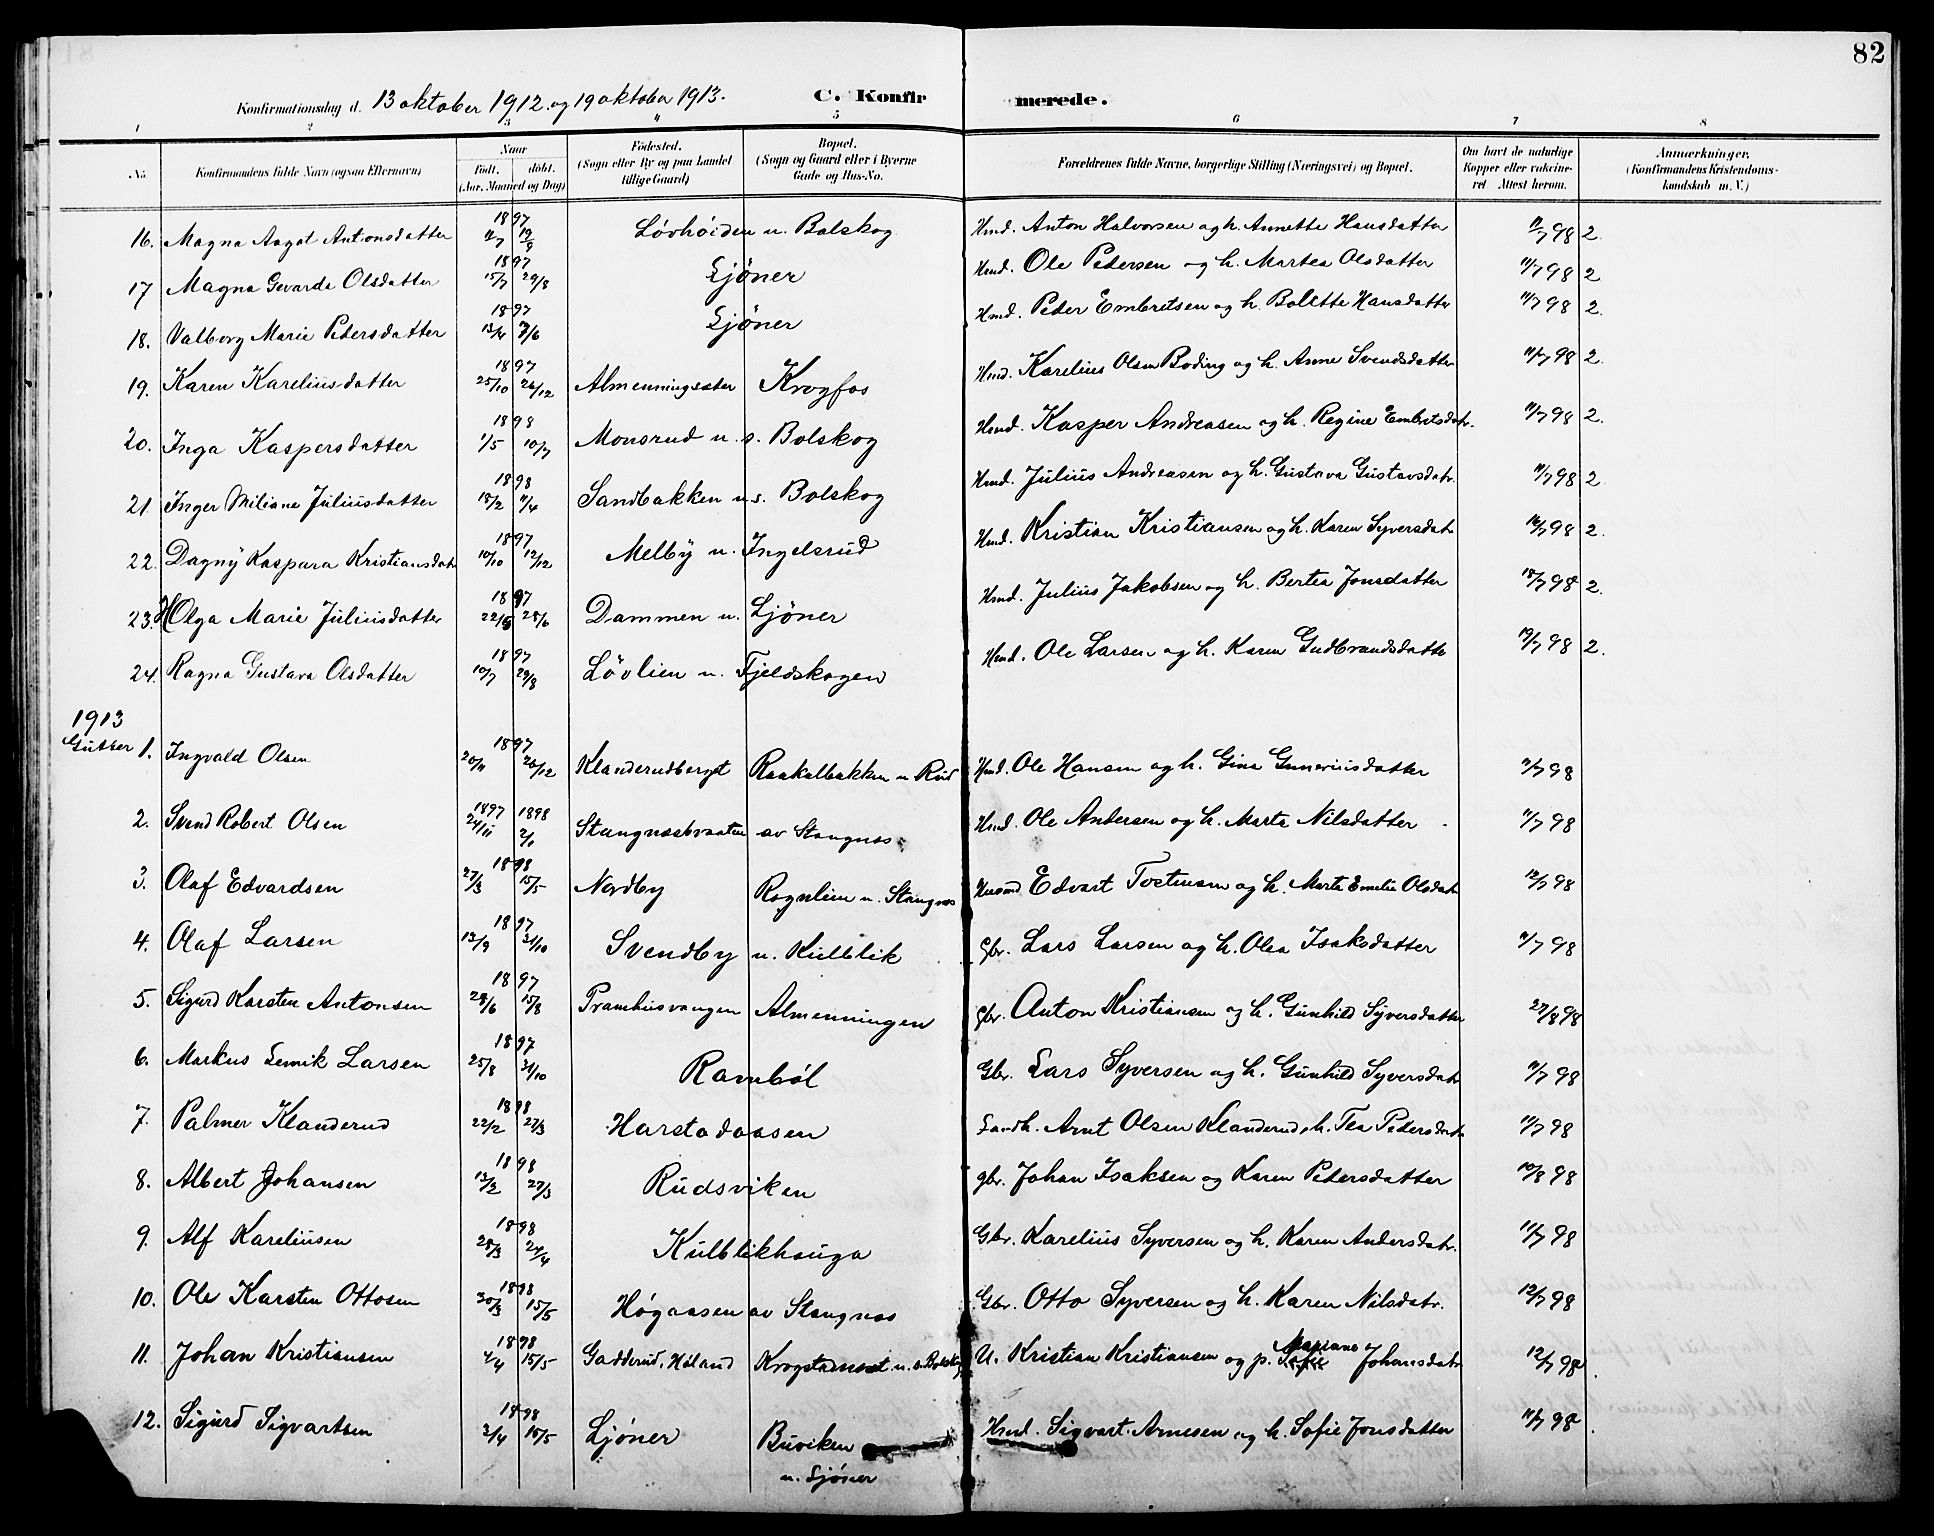 82
Konfirmationsdag d. 13 oktober 1912 og 19 oktober 1913. C. Konfirmerede.
1 2 3 4 5 6 7 8
No. Konfirmandens fulde Navn (ogsaa Efternavn) Naar født. døbt. (Aar, Maaned og Dag) Fødested. (Sogn eller By og paa Landet tillige Gaard) Bopæl. (Sogn og Gaard eller i Byerne Gade og Hus-No. Forældrenes fulde Navne, borgerlige Stilling (Næringsvei) og Bopæl. Om havt de naturlige Kopper eller vakcineret Attest herom. Anmærkninger, (Konfirmandens Kristendomskundskab m. V.)
16. Magna Aagot Antonsdatter 1897 19/9 Lövhöiden u. Bolskog Hmd. Anton Halvorsen og h. Annette Hansdatter 11/7 98 2.
17 Magna Gevarda Olsdatter 1897 15/7 29/8 Ljöner Hmd. Ole Pedersen og h. Martea Olsdatter 11/7 98 2
18. Valborg Marie Pedersdatter 1897 13/4 7/6 Ljöner Hmd. Peder Embretsen og h. Bolette Hansdatter 11/7 98 2.
19. Karen Kareliusdatter 1897 25/10 26/12 Almenningsæter Krogfos Hmd. Karelius Olsen Boding og h. Anne Svendsdatter 11/7 98 2.
20. Inga Kaspersdatter 1898 1/5 10/7 Monsrud u. s. Bolskog Hmd. Kasper Andreasen og h. Regine Embretsdatr. 11/7 98 2.
21. Inger Miliane Juliusdatter 1898 18/2 11/4 Sandbakken u. s. Bolskog Hmd. Julius Andreasen og h. Gustava Gustavsdatr. 11/7 98 2
22. Dagny Kaspara Kristiansdatr 1897 10/10 12/12 Melby u. Ingelsrud Hmd. Kristian Kristiansen og h. Karen Syversdatr 14/7 98 2.
23. Olga Marie Juliusdatter 1897 22/5 28/6 Dammen u. Ljöner Hmd. Julius Jakobsen og h. Bertea Jonsdatter 18/7 98 2.
24. Ragna Gustava Olsdatter 1897 10/7 29/8 Lövlien u. Fjeldskogen Hmd. Ole Larsen og h. Karen Gudbrandsdatte 19/7 98 2.
1913
Gutter 1. Ingvald Olsen 1897 20/11 26/12 Klanderudberget Raakalbakken u Rud Hmd. Ole Hansen og h. Gina Guneriusdatter 11/7 98
2. Svend Robert Olsen 1897 24/11 1898 2/1 Stangnæsbraaten av Stangnæs Hmd. Ole Andersen og h. Marte Nilsdatter 11/7 98
3. Olaf Edvardsen 1898 27/3 15/5 Nordby Rognlien u. Stangnæs Husmd Edvart Tostensen og h. Marte Emelie Olsdatr 12/7 98
4. Olaf Larsen 1897 13/9 31/10 Svendby u. Kulblik Gbr. Lars Larsen og h. Olea Isaksdatter 11/7 98
5. Sigurd Karsten Antonsen 1897 28/6 15/8 Pramhusvangen Almenningen Gbr. Anton Kristiansen og h. Gunhild Syversdatter 27/8 98
6. Markus Lemik Larsen 1897 25/8 31/10 Ramböl Gbr. Lars Syversen og h. Gunhild Syversdatr 11/7 98
7. Palmer Klanderud 1898 22/2 27/3 Harstadaasen Landh. Arnt Olsen Klanderud, h. Tea Pedersdatr 11/7 98
8. Albert Johansen 1898 13/2 27/3 Rudsviken gbr. Johan Isaksen og Karen Pedersdatter 10/8 98
9. Alf Kareliusen 1898 28/3 24/4 Kulblikhauga Gbr. Karelius Syversen og h. Karen Andersdatr. 11/7 98
10. Ole Karsten Ottosen 1898 30/3 15/5 Høgaasen av Stangnæs Gbr. Otto Syversen og h. Karen Nilsdatr. 12/7 98
11. Johan Kristiansen 1898 4/4 15/5 Gadderud, Høland Krogstadnæset u. s. Bolskog U. Kristian Kristiansen og p. Mariane Johansdatr 12/7 98
12. Sigurd Sigvartsen 1898 3/4 15/5 Ljöner Buviken u. Ljöner Hmd. Sigvart Arnesen og h. Sofie Jonsdatter 11/7 98